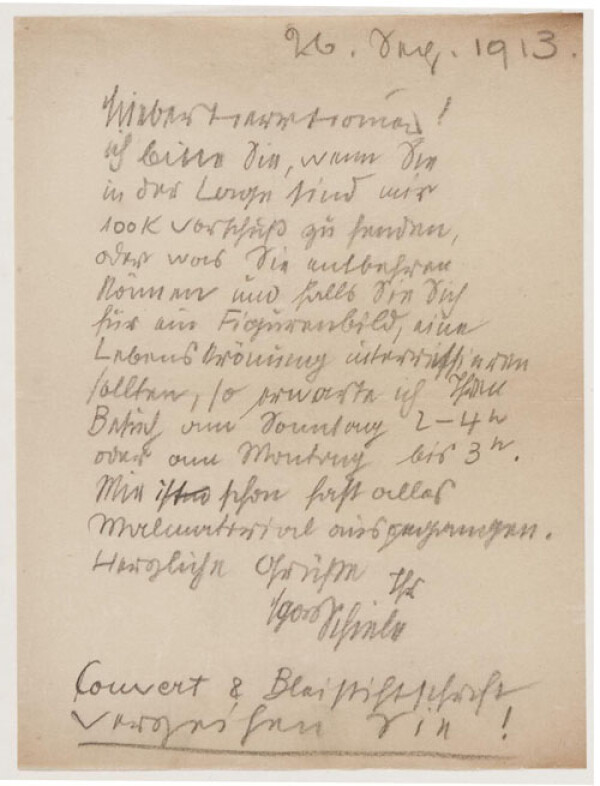 26. Dez. 1913.
Lieber Herr Roessler!
ich bitte Sie, wenn Sie
in der Lage sind mir
100 K Vorschuß zu senden,
oder was Sie entbehren
können und falls Sie sich
für ein Figurenbild, eine
Lebenskrönung interressieren
sollten, so erwarte ich Ihren
Besuch am Sonntag 2–4h
oder am Montag bis 3h.
Mir ist schon fast alles
Malmaterial ausgegangen.
Herzliche Grüße Ihr
Egon Schiele
Couvert & Bleistiftschrift
verzeihen Sie!